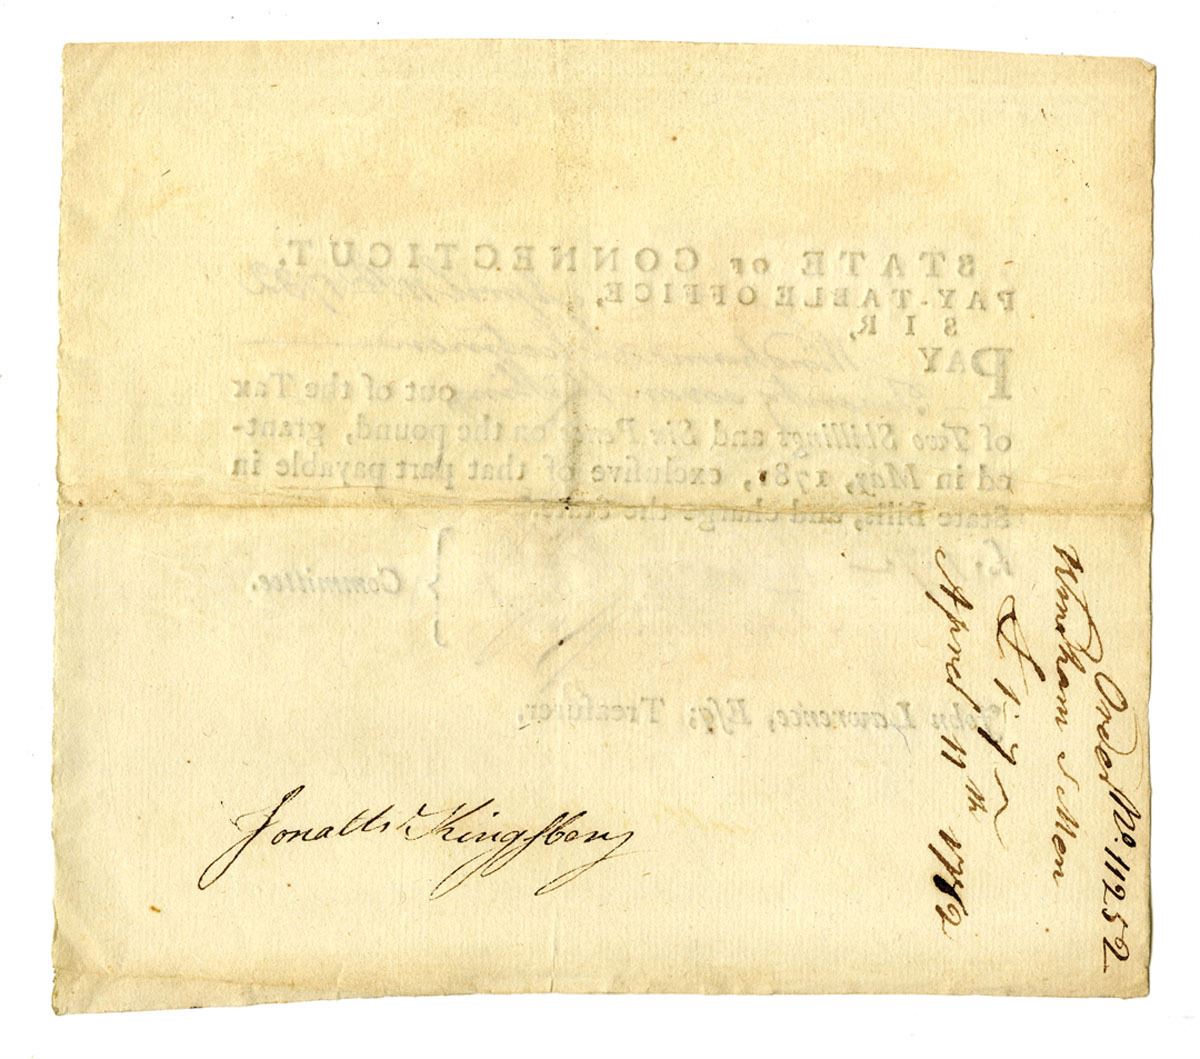 STATE OF CONNECTICUT.
PAY-TABLE OFFICE,
SIR,
PAY
out of the Tax
of Two Shillings and Six Pence on the pound, grant-
ed in May, 1781, exclusive of that part payable in
State Bills, and charge the State.
Committee.
John Lawrence, Esq; Treasurer,
Jonath Kingsbery
Order No. 11252
Windham Men
£ 1..7
April 11th 1782